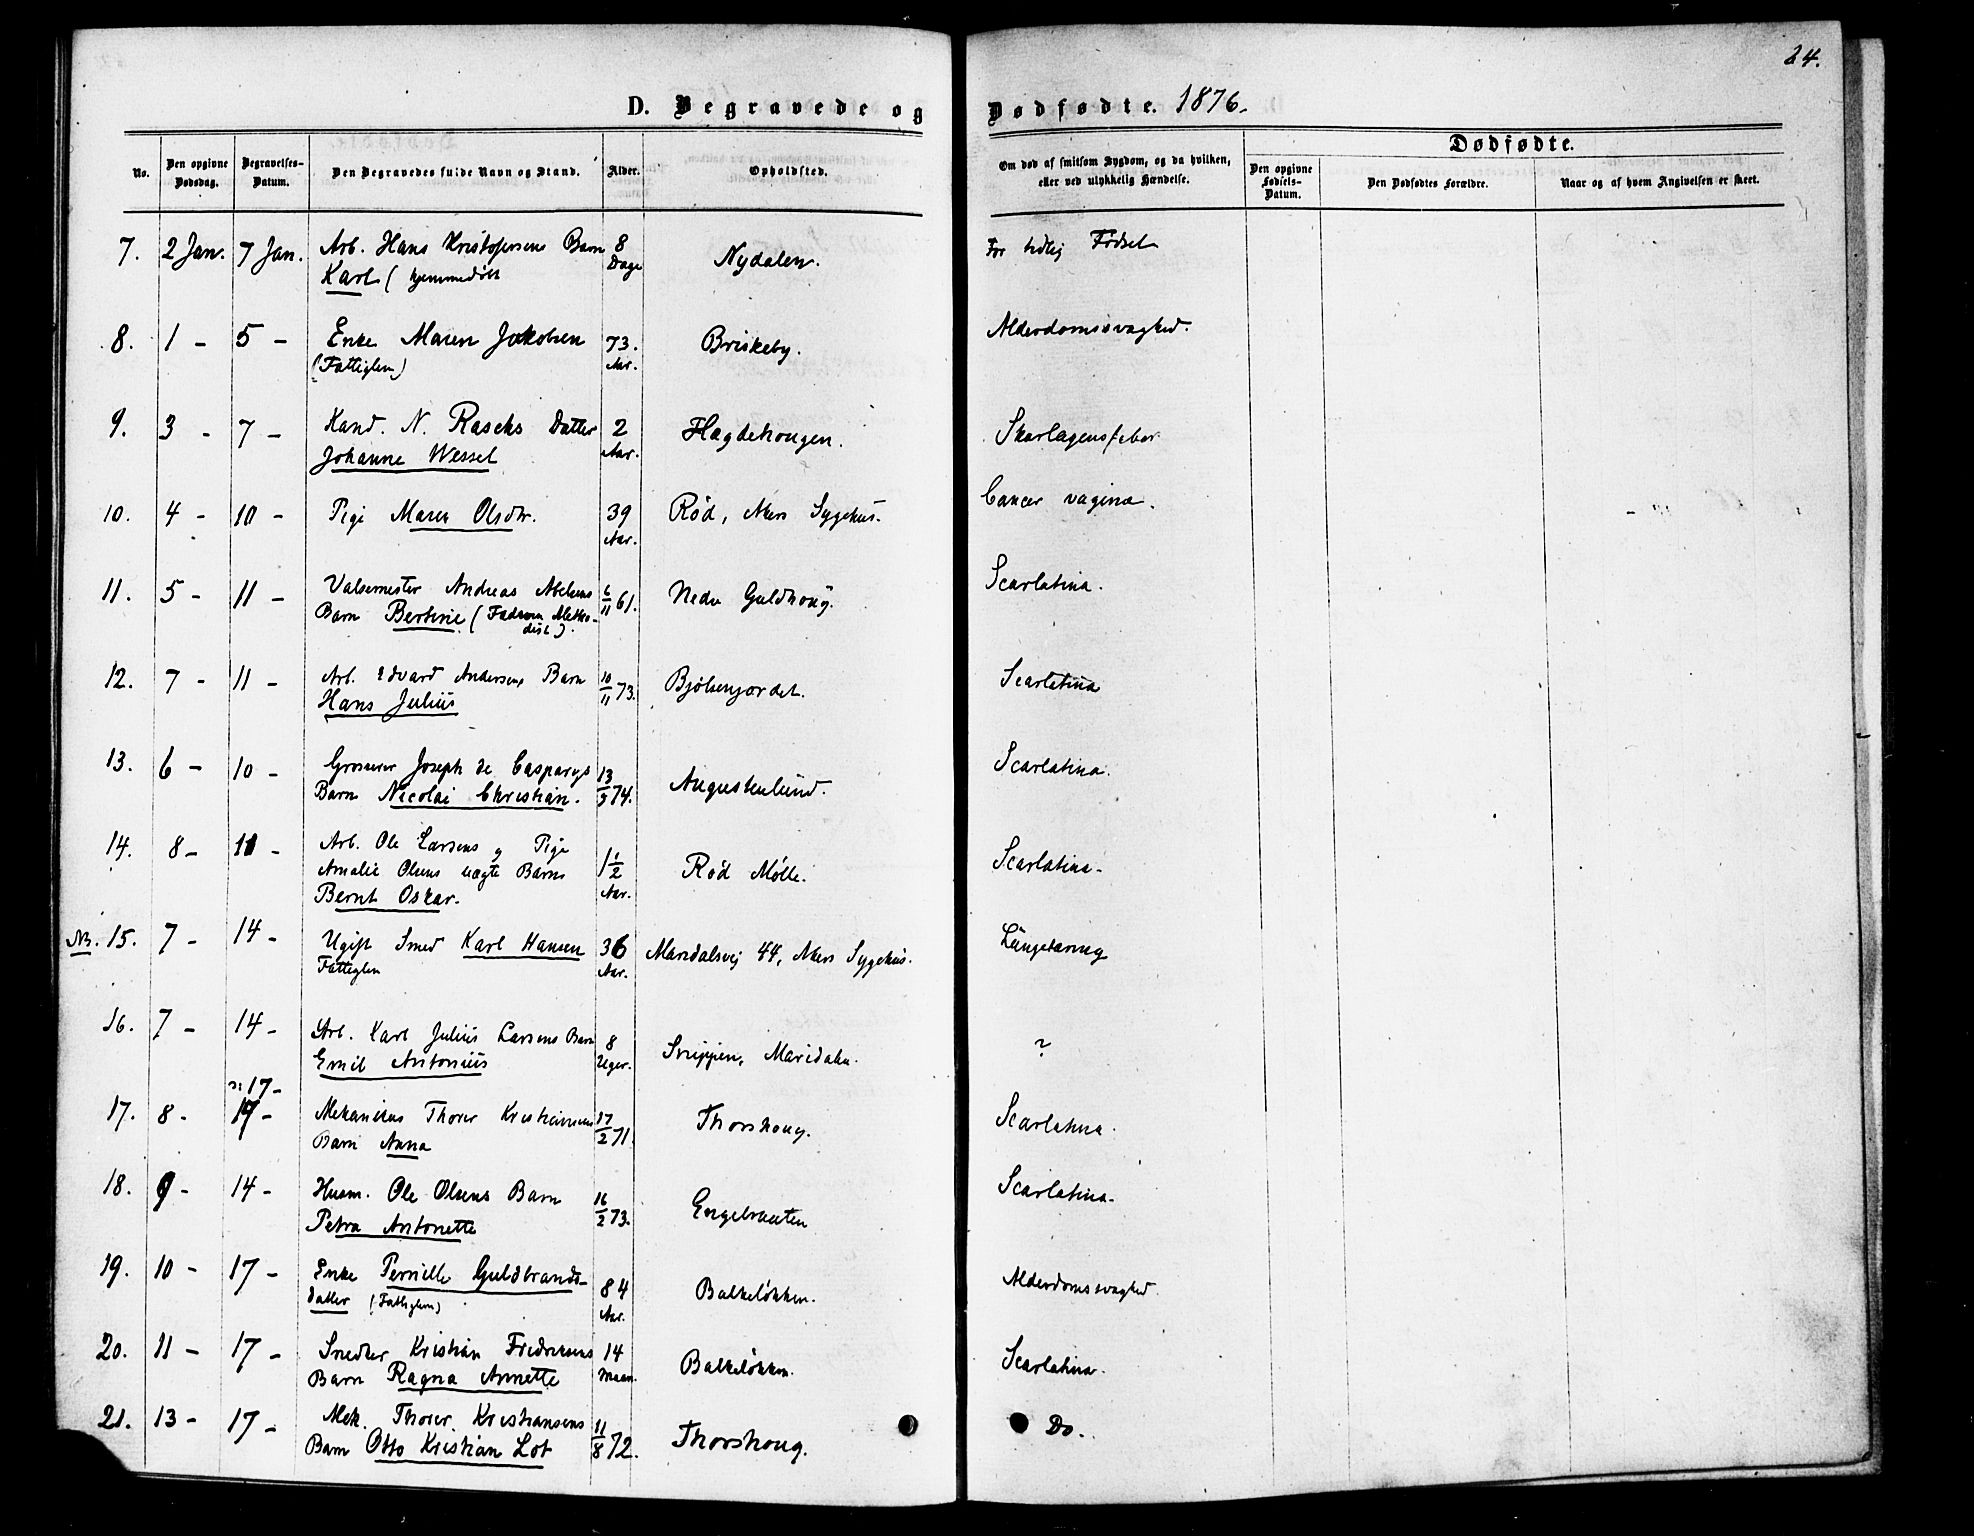 24.
D. Begravede og Dødfødte. 1876.
No.
Den opgivne Dødsdag.
Begravelses-Datum.
Den Begravedes fulde Navn og Stand.
Alder.
Opholdsted.
Om død af smitsom Sygdom, og da hvilken, eller ved ulykkelig Hændelse.
Dødfødte.
Den opgivne Fødsels-Datum.
Den Dødfødtes Forældre.
Naar og af hvem Angivelsen er skeet.
7. 2 Jan. 7 Jan. Arb. Hans Kristofersens Barn 8 Dage Nydalen. For tidlig Fødsel
Karl (hjemmedøbt
8. 1 - 5 - Enke Maren Jakobsen 73. Aar. Briskeby. Alderdomssvaghed.
(Fattiglem)
9. 3 - 7 - Kand. N. Raschs Datter 2 Aar. Hægdehougen. Skarlagensfeber
Johanne Wessel
10. 4 - 10 - Pige Maren Olsdtr. 39 Aar. Rød, Akers Sygehus. Cancer vaginæ.
11. 5 - 11 - Valsemester Andreas Abelsens 6/11 61. Nedr Guldhoug. Scarlatina.
Barn Bertine (Faderen Metho-
dist).
12. 7 - 11 - Arb. Edvard Andersens Barn 10/11 73. Bjølsenjordet. Scarlatina
Hans Julius
13. 6 - 10 - Grosserer Joseph de Casparys 13/5 74. Augustenlund. Scarlatina.
Barn Nicolai Christian.
14. 8 - 11 - Arb. Ole Larsens og Pige 1 1/2 Aar. Rød Mølle. Scarlatina.
Amalie Olsens uægte Barn
Bernt Oskar.
NB. 15. 7 - 14 - Ugift Smed Karl Hansen 36 Aar. Maridalsvej 44, Akers Sygehus. Lungetæring
Fattiglem
16. 7 - 14 - Arb. Karl Julius Larsens Barn 8 Uger. Snippen, Maridalen. ?
Emil Antonius
17 -
17. 8 - 17 - Mekanikus Thorer Kristiansens 17/2 71. Thorshoug. Scarlatina.
Barn Anna
18. 9 - 14 - Husm. Ole Olsens Barn 16/2 73. Engebraaten Scarlatina.
Petra Antonette
19. 10 - 17 - Enke Pernille Guldbrands- 84 Aar. Balkeløkken. Alderdomssvaghed
datter (Fattiglem)
20. 11 - 17 - Snedker Kristian Fredriksens 14 Maan. Balkeløkken. Scarlatina.
Barn Ragna Annette
21. 13 - 17 - Mek. Thorer Kristiansens 11/8 72. Thorshoug. Do.
Barn Otto Kristian Lot